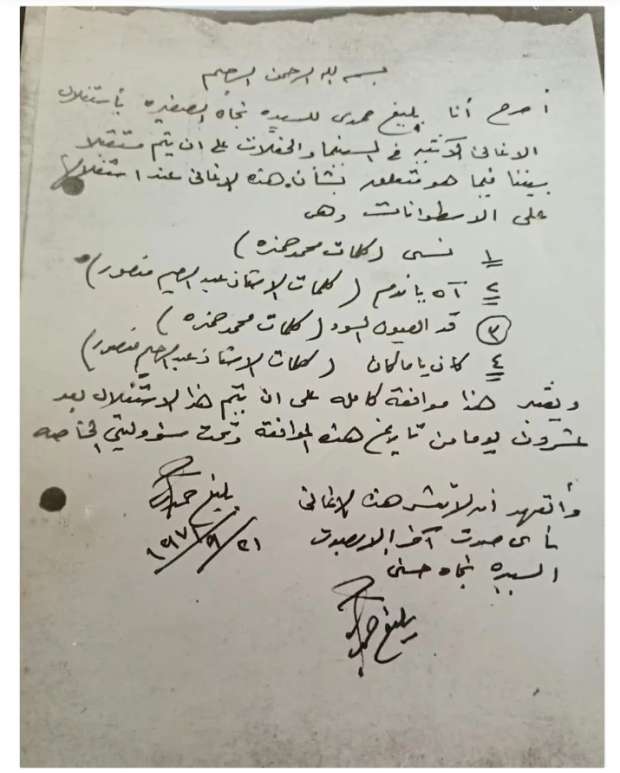 بسم الله الرحمن الرحيم
أصرح أنا بليغ حمدى للسيده نجاة الصغيره بأستغلال
الاغانى الآتيه فى السينما والحفلات على ان يتم مستقبلا
بيننا فيما هو متعلق بشأن هذه الاغانى عند استغلالها
على الاسطوانات وهى
١ نسى (كلمات محمد حمزه)
٢ آه يا ندم (كلمات الاستاذ عبد الرحيم منصور)
٣ قد العيون السود (كلمات محمد حمزه)
٤ كان ياما كان (كلمات الاستاذ عبد الرحيم منصور)
ويعتبر هذا موافقة كامله على ان يتم هذا الاستغلال بعد
عشرون يوما من تاريخ هذه الموافقة وتحت مسؤوليتي الخاصه
وأتعهد أن لا تنشر هذه الاغانى
بأى صوت آخر إلا بصوت
السيده نجاه حسنى
بليغ حمدى
٢١/٩/١٩٧
بليغ حمدى